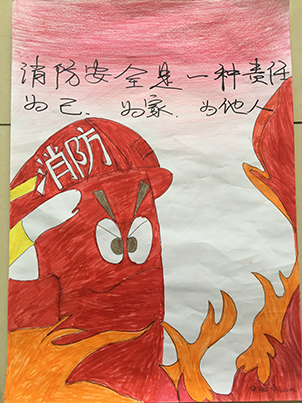 消防安全是一种责任
为己.为家.为他人
消防